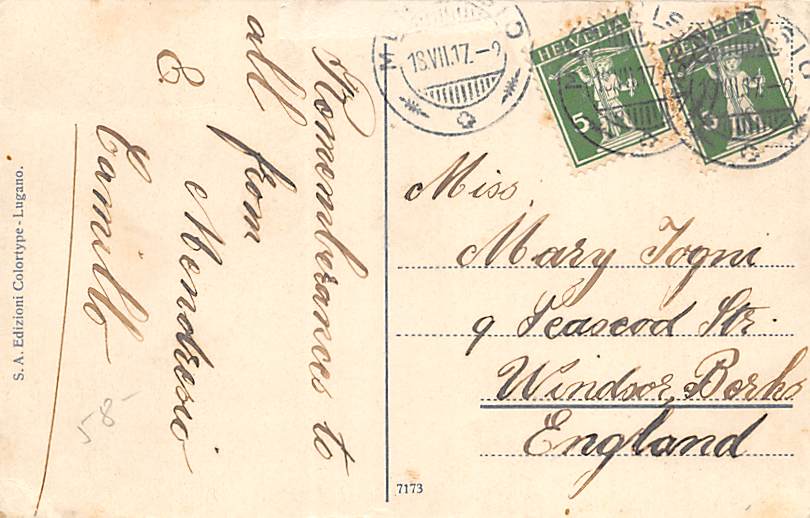 Remembrances to
all from
E. Mendrisio
Camillo
58-
S. A. Edizioni Colortype - Lugano.
18.VII.17.-2
HELVETIA
5
HELVETIA
5
Miss.
Mary Togni
9 Peascod Str.
Windsor, Berks
England
7173